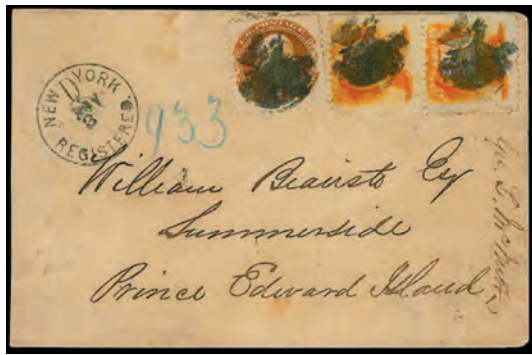 NEW YORK
REGISTERED
933
William Beairsto Esq
Summerside
Prince Edward Island